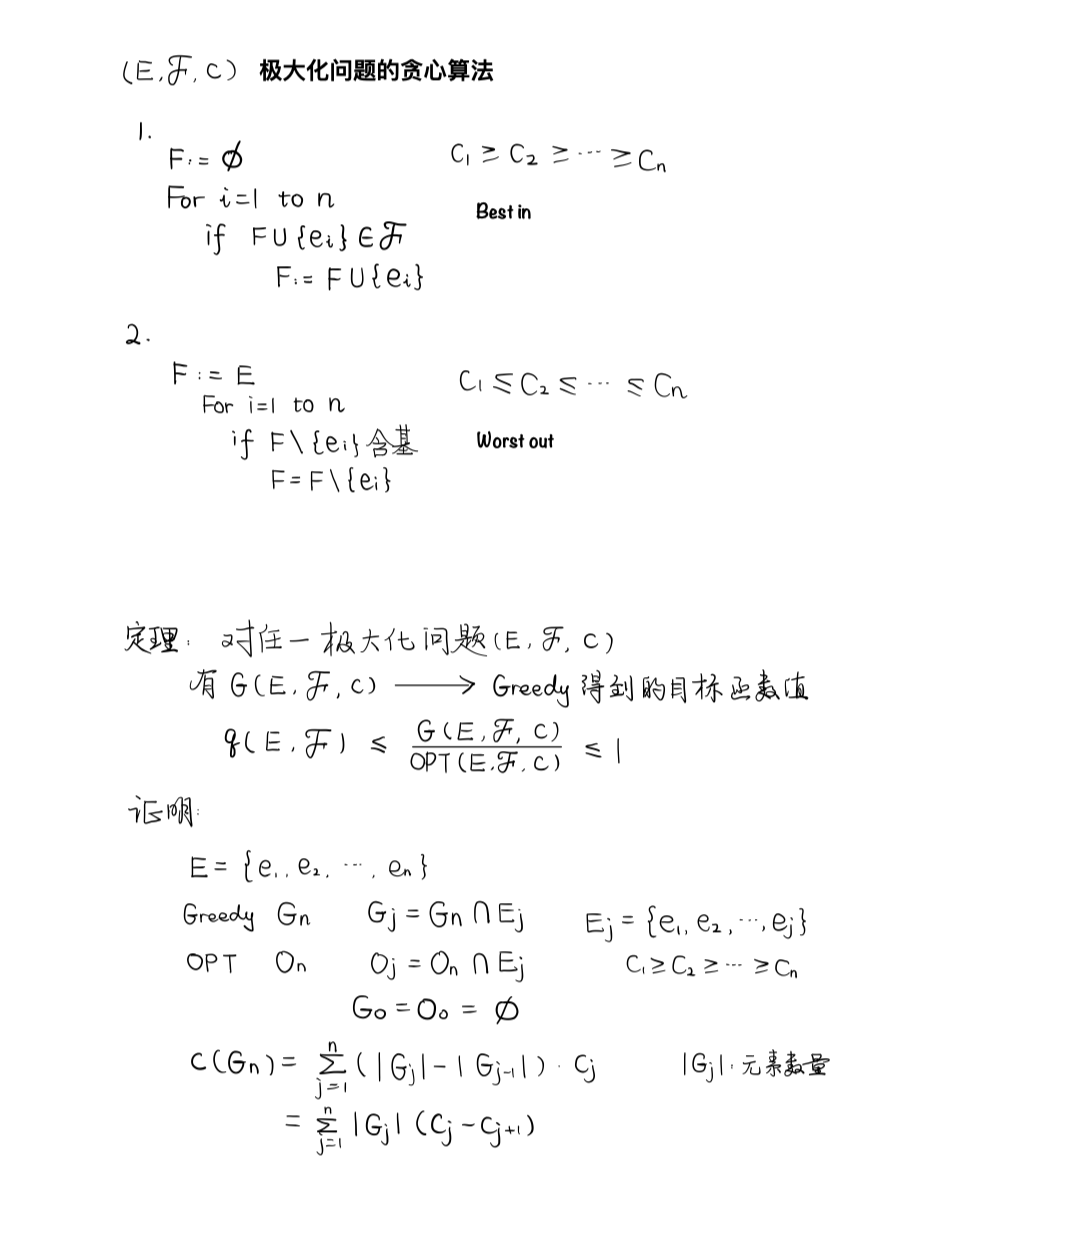 (E, ℱ, c) 极大化问题的贪心算法
1.
F := ∅ C₁ ≥ C₂ ≥ ⋯ ≥ Cₙ
For i=1 to n Best in
if F∪{eᵢ}∈ℱ
F := F∪{eᵢ}
2.
F := E C₁ ≤ C₂ ≤ ⋯ ≤ Cₙ
For i=1 to n
if F\{eᵢ}含基 Worst out
F=F\{eᵢ}
定理: 对任一极大化问题(E, ℱ, c)
有 G(E, ℱ, c) ⟶ Greedy 得到的目标函数值
q(E, ℱ) ≤ G(E, ℱ, c) / OPT(E, ℱ, c) ≤ 1
证明:
E = {e₁, e₂, ⋯, eₙ}
Greedy Gₙ Gⱼ = Gₙ ∩ Eⱼ Eⱼ = {e₁, e₂, ⋯, eⱼ}
OPT Oₙ Oⱼ = Oₙ ∩ Eⱼ C₁ ≥ C₂ ≥ ⋯ ≥ Cₙ
G₀ = O₀ = ∅
c(Gₙ) = ∑ⱼ₌₁ⁿ (|Gⱼ| − |Gⱼ₋₁|) · Cⱼ |Gⱼ|: 元素数量
= ∑ⱼ₌₁ⁿ |Gⱼ| (Cⱼ − Cⱼ₊₁)